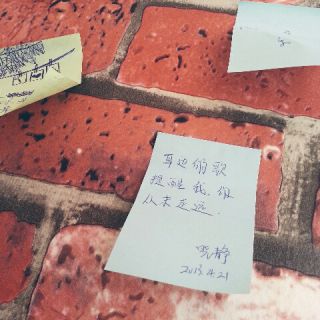 耳边的歌
提醒我,你
从未走远.
晓静
2013.4.21